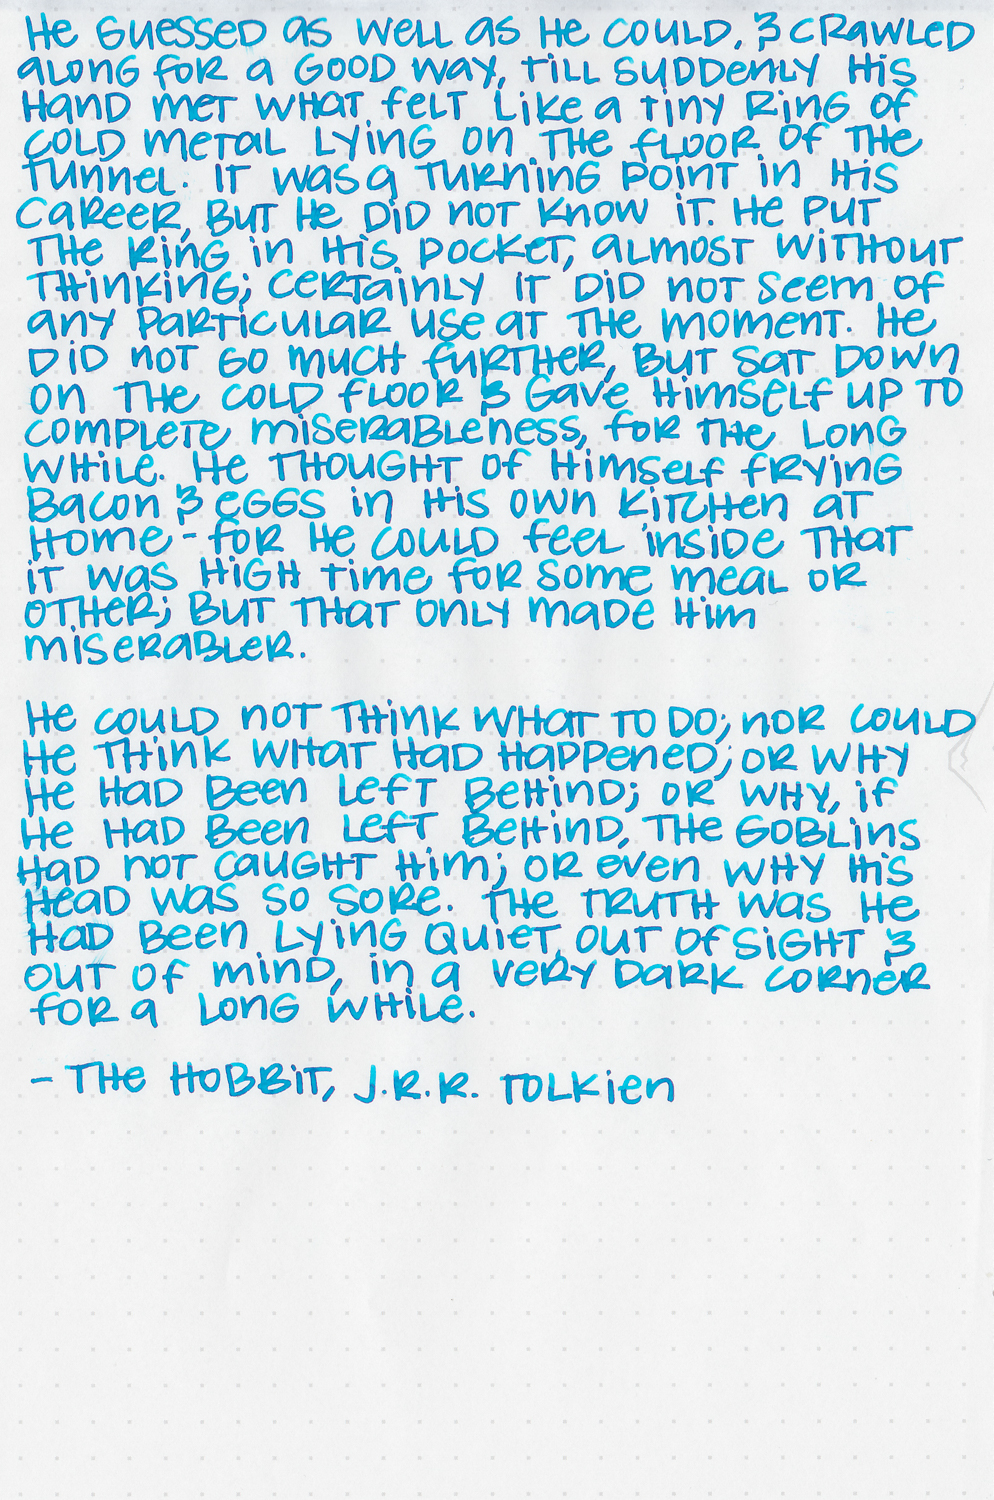 He guessed as well as he could, & crawled
along for a good way, till suddenly his
hand met what felt like a tiny ring of
cold metal lying on the floor of the
tunnel. It was a turning point in his
career, but he did not know it. He put
the ring in his pocket, almost without
thinking; certainly it did not seem of
any particular use at the moment. He
did not go much further, but sat down
on the cold floor & gave himself up to
complete miserableness, for the long
while. He thought of himself frying
bacon & eggs in his own kitchen at
home - for he could feel inside that
it was high time for some meal or
other; but that only made him
miserabler.

He could not think what to do; nor could
he think what had happened; or why
he had been left behind; or why, if
he had been left behind, the goblins
had not caught him; or even why his
head was so sore. The truth was he
had been lying quiet, out of sight &
out of mind, in a very dark corner
for a long while.

- The Hobbit, J.R.R. Tolkien